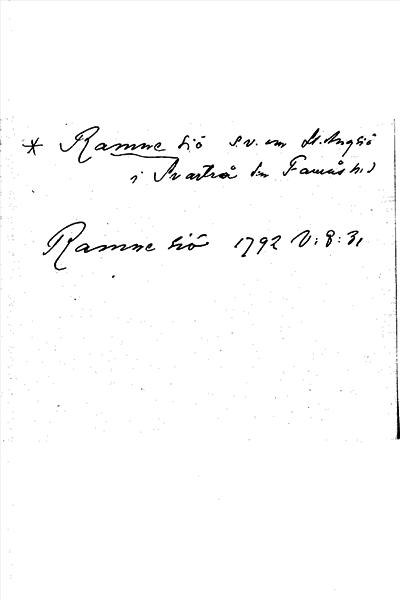 * Ramne sjö s.v. om St. Ängsjö
i Svartrå sn Faurås hd
Ramne siö 1792 V:8:31